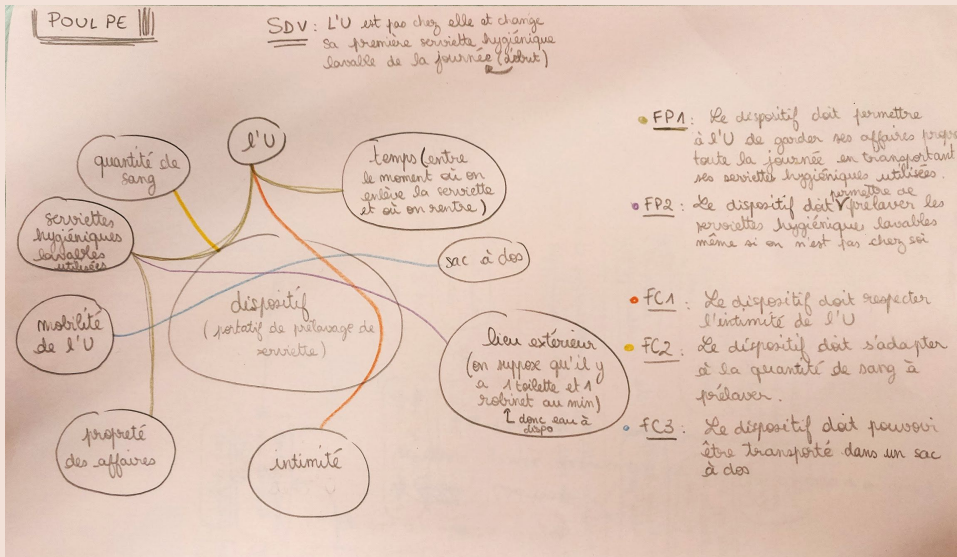 POULPE
SDV : L'U est pas chez elle et change
sa première serviette hygiénique
lavable de la journée (début)
l'U
quantité de
sang
temps (entre
le moment où on
enlève la serviette
et où on rentre)
serviettes
hygiéniques
lavables
utilisées
sac à dos
mobilité
de l'U
dispositif
(portatif de prélavage de
serviette)
lieu extérieur
(on suppose qu'il y
a 1 toilette et 1
robinet au min)
↳ donc eau à
dispo
propreté
des affaires
intimité
FP1 : Le dispositif doit permettre
à l'U de garder ses affaires propres
toute la journée en transportant
ses serviettes hygiéniques utilisées.
permettre de
FP2 : Le dispositif doit V prélaver les
serviettes hygiéniques lavables
même si on n'est pas chez soi
FC1 : Le dispositif doit respecter
l'intimité de l'U
FC2 : Le dispositif doit s'adapter
à la quantité de sang à
prélaver.
FC3 : Le dispositif doit pouvoir
être transporté dans un sac
à dos